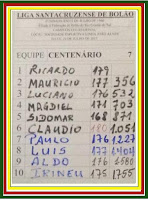 LIGA SANTACRUZENSE DE BOLÃO
EQUIPE CENTENÁRIO 7
1 RICARDO 179
2 MAURICIO 177 356
3 LUCIANO 176 532
4 MAGDIEL 171 703
5 SIDOMAR 168 871
6 CLAUDIO 180 1051
7 PAULO 176 1227
8 LUIS 177 1404
9 ALDO 176 1580
10 IRINEU 175 1755